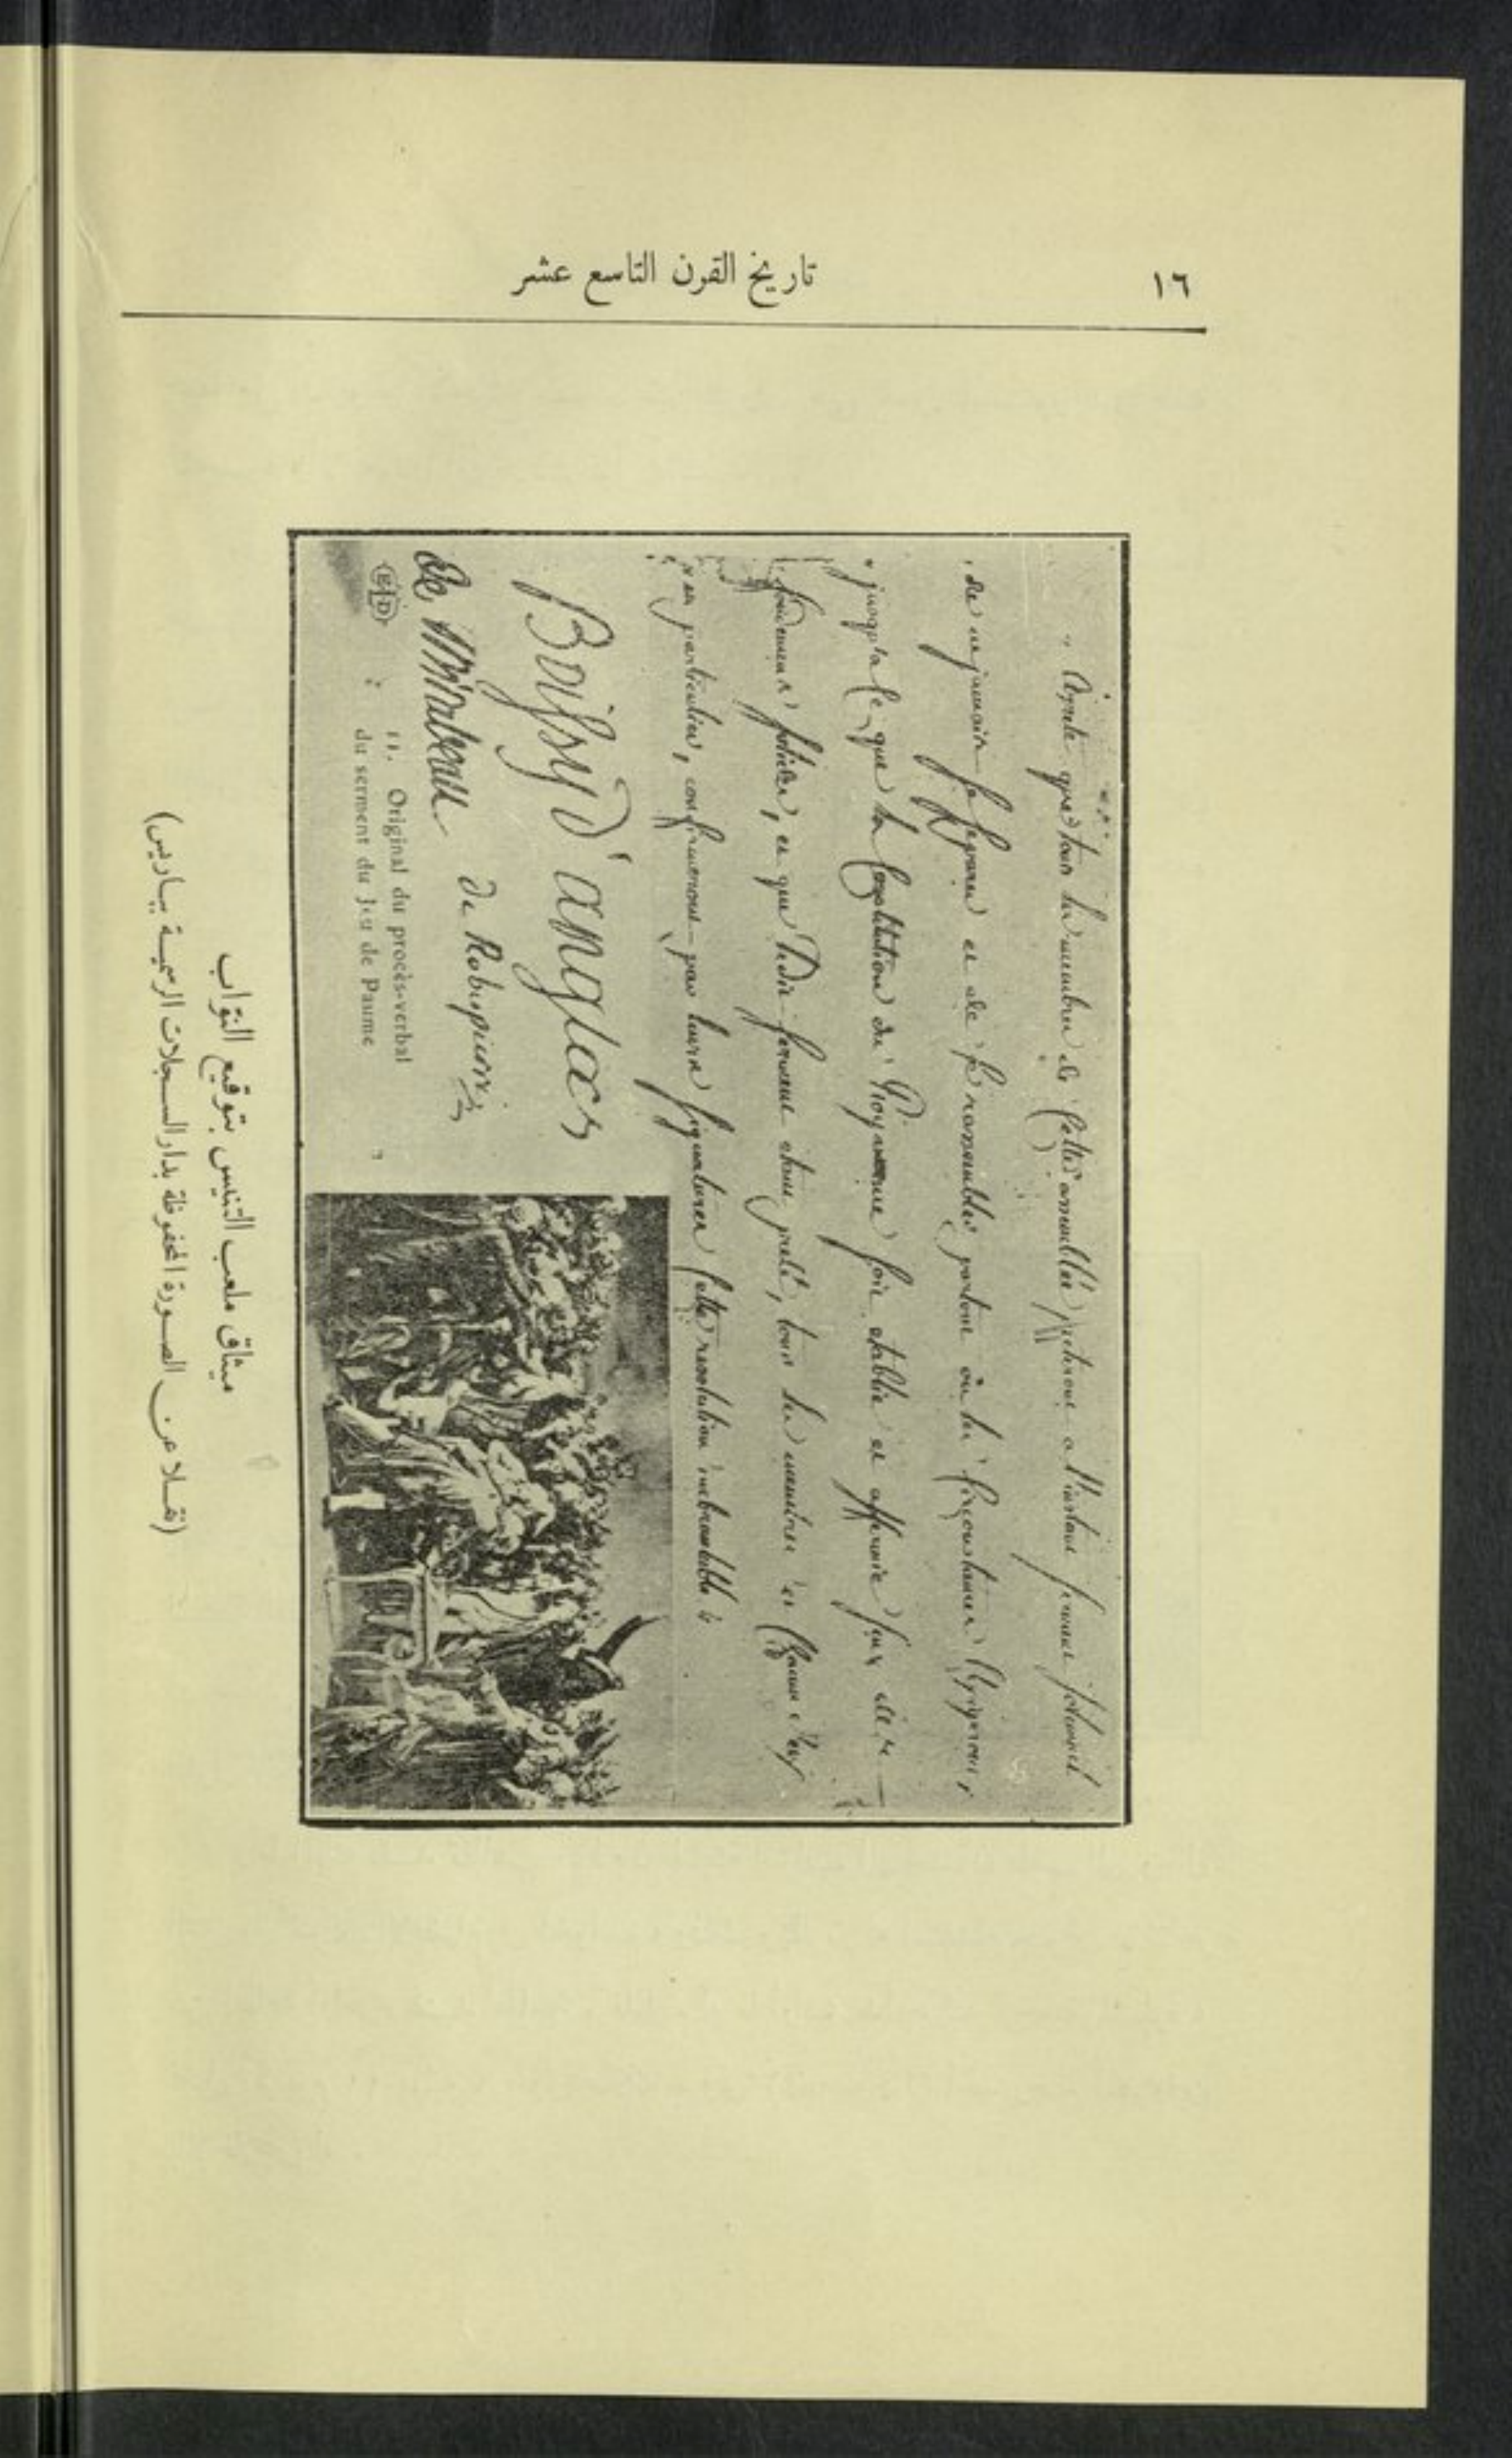 ١٦
تاريخ القرن التاسع عشر
„ Arrete que tous les membres de Cette assemblée preteront a l'instant serment solemnel
„ de ne jamais se separer et de se rassembler partout où les circonstances l'exigeront,
„ jusqu'a ce que la Constitution du Royaume soit etablie et affermie sur des
fondemens solides, et que ledit serment etant preté, tous les membres et Chacun d'eux
„ en particulier, confirmeront par leurs signatures Cette resolution inebranlable.
Boissy d'anglas
de Mirabeau de Robespierre
E.L.D
11. Original du procès-verbal
du serment du Jeu de Paume
ميثاق ملعب التنيس بتوقيع النوّاب
(نقلا عن الصورة المحفوظة بدار السجلات الرسمية بباريس)